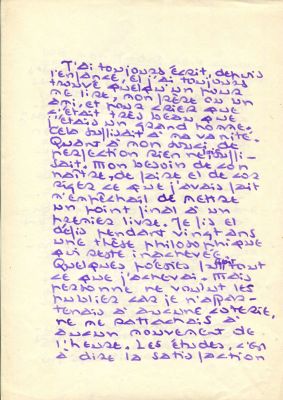 J'ai toujours écrit, depuis
l'enfance, et j'ai toujours
trouvé quelqu'un pour
me lire, mon frère ou un
ami, et pour crier que
c'était très beau que
j'étais un grand homme.
Cela suffisait à ma vanité.
Quant à mon souci de
perfection rien ne suffi-
sait. Mon besoin de con
naître, de faire et de cor
riger ce que j'avais fait
m'empêchait de mettre
un point final à un
premier livre. Je fis et
défis pendant vingt ans
une thèse philosophique
qui reste inachevée.
Quelques poésies fut tout
ce que j'achevai. Mais
personne ne voulut les
publier car je n'appar-
tenais à aucune coterie,
ne me rattachais à
aucun mouvement de
l'heure. Les études, c'en
à dire la satisfaction